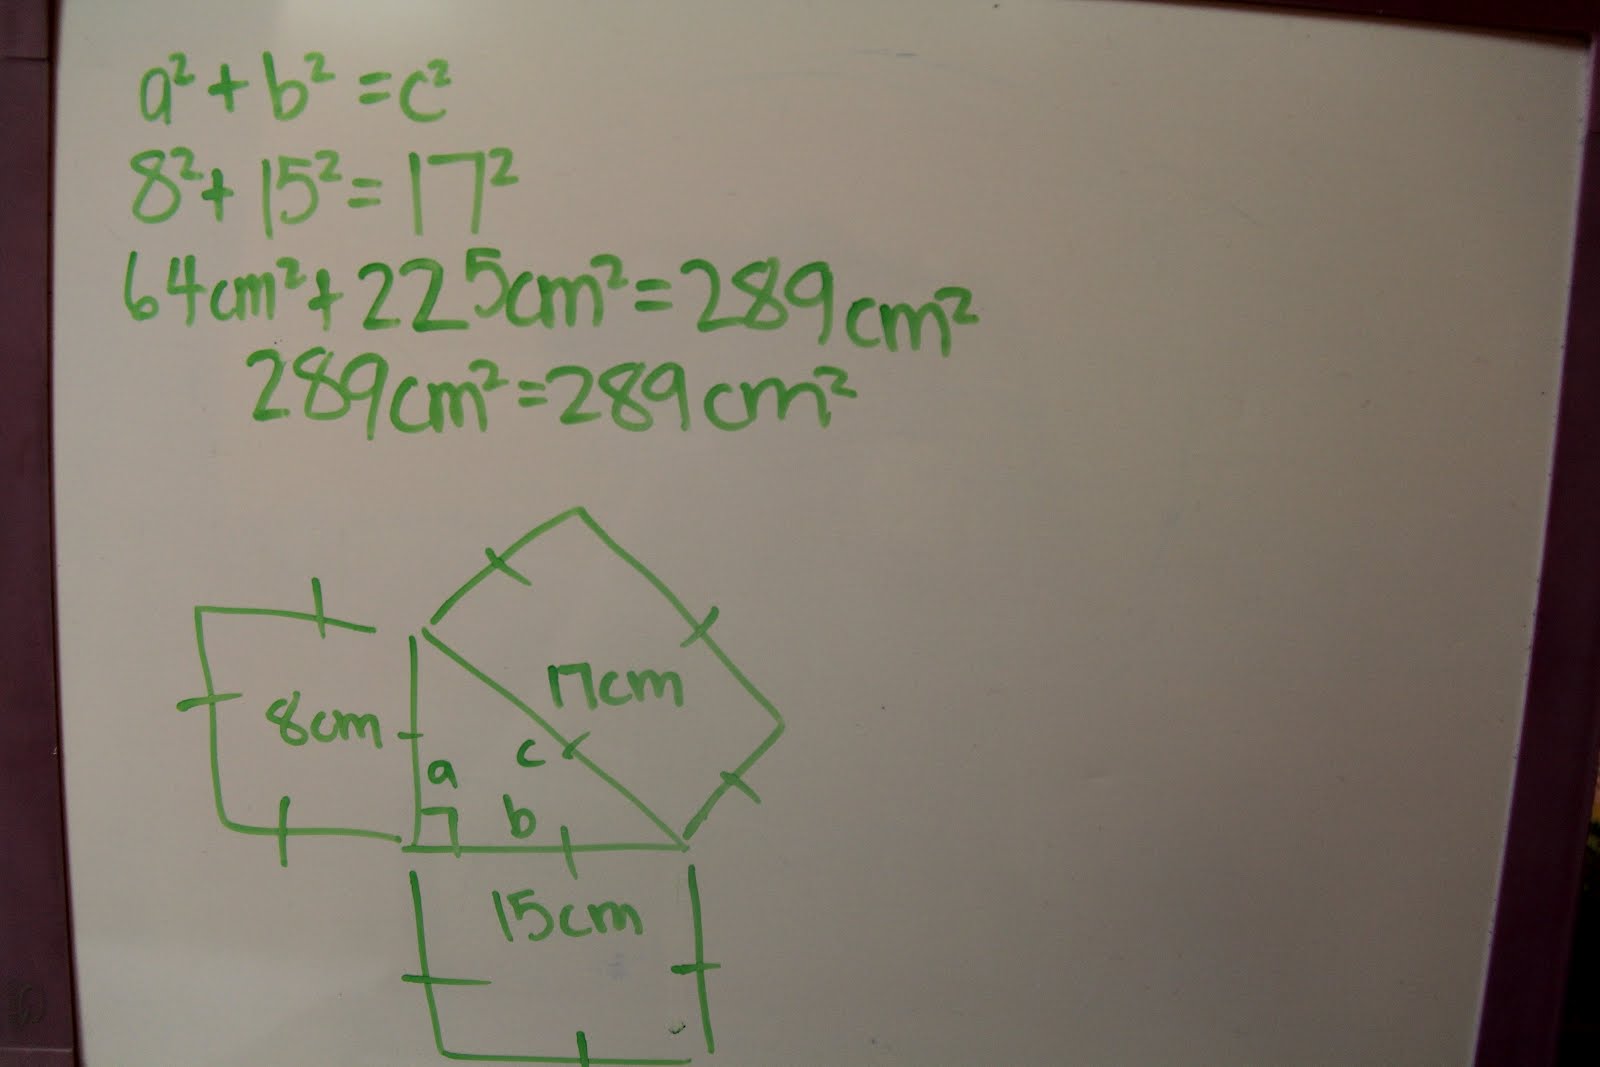 a² + b² = c²
8² + 15² = 17²
64cm² + 225cm² = 289cm²
289cm² = 289cm²
17cm
8cm
c
a
b
15cm